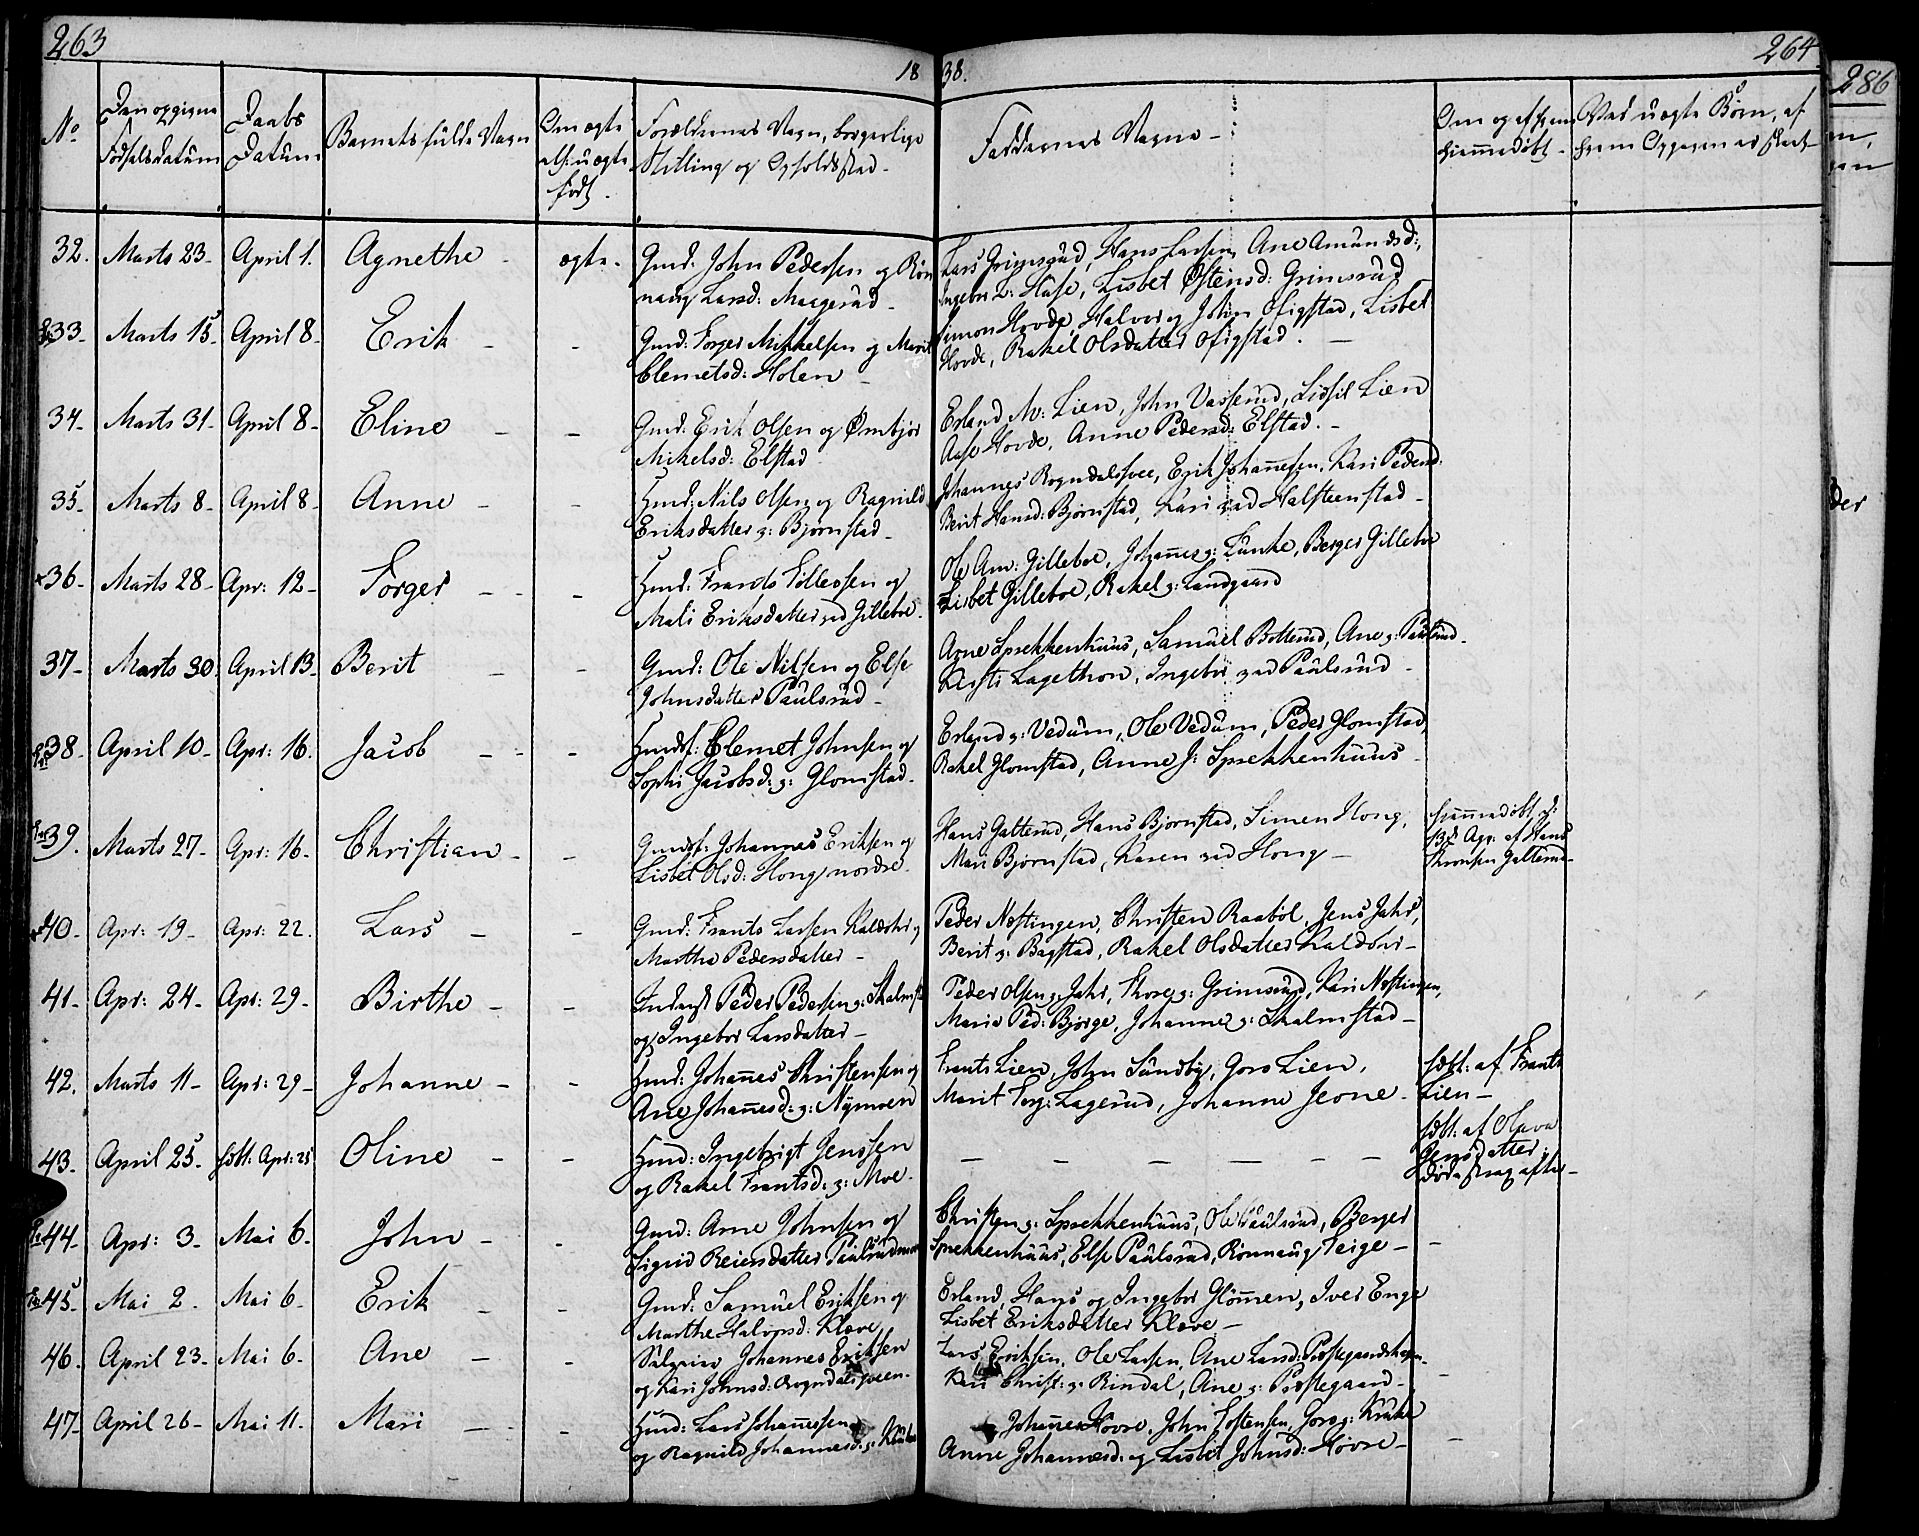 263
18
38.
264
286
No
Den opgivne Fødselsdatum
Daabs Datum
Barnets fulde Navn
Om ægte eller uægte født.
Forældrenes Navn, borgerlige Stilling og Opholdssted.
Faddernes Navne
32. Marts 23 April 1. Agnethe ægte. Gmd: John Pedersen og Røn
naug Larsd: Maageruud
Lars Grimsrud, Hans Larsen, Ane Amundsd:,
Ingebor L: Huse, Lisbet Østensd: Grimsrud
33 Marts 15 April 8 Erik Gmd: Torger Mikkelsen og Marit
Clemetsd: Holen
Simon Hovde, Halvor og John Ofigstad, Lisbet
Hovde, Rakel Olsdatter Ofigstad.
34 Marts 31 April 8 Eline Gmd: Erik Olsen og Ømbjør
Mikelsd: Elstad
Erland M: Lien, John Vasrud, Sidsil Lien
Aase Hovde, Anne Pedersd: Elstad.
35 Marts 8 April 8 Anne Huusmd: Nils Olsen og Ragnild
Eriksdatter g: Bjørnstad
Johannes Rogndalsveen, Erik Johannesen, Kari Pedersd:
Berit Hansd: Bjørnstad, Kari ved Halsteenstad
36 Marts 28 Apr: 12 Torger Hmd: Frants Tollefsen og
Mali Eriksdatter ved Gilleboe.
Ole Am: Gilleboe, Johannes g: Lunke, Berger Gilleboe
Lisbet Gilleboe, Rakel g: Landgaard
37 Marts 30 April 13 Berit Gmd: Ole Nilsen og Else
Johnsdatter Paulsrud
Arne Sprekkenhuus, Samuel Botterud, Ane g: Paulsrud
Kirsti Lagethon, Ingebor ved Paulsrud
38. April 10 Apr: 16. Jacob Hmdsf: Clemet Johnsen og
Sophi Jacobsd: g: Glomstad
Erland g: Vedum, Ole Vedum, Peder Glomstad,
Rakel Glomstad, Anne J: Sprekkenhuus
39. Marts 27 Apr: 16 Christian Gmdsf: Johannes Eriksen og
Lisbet Olsd: Hong nordre
Hans Galterud, Hans Bjørnstad, Simen Hong,
Mari Bjørnstad, Karen ved Hong
hjemmedøbt d:
13d Apr: af Hans
Galterud
40 Apr: 19 Apr: 22. Lars Gmd: Frants Larsen Kaldohr og
Marthe Pedersdatter
Peder Nøstingen, Christen Raabøl, Jens Jahr,
Berit g: Bagstad, Rakel Olsdatter Kaldohr
41 Apr: 24 Apr: 29 Birthe Inderst Peder Pedersen g: Skalmstad
og Ingebor Larsdatter
Peder Olsen g: Jahr, Thore g: Grimsrud, Kari Nøstingen,
Marie Ped: Bjørge, Johanne g: Skalmstad
42. Marts 11 Apr: 29 Johanne Hmd: Johannes Christensen og
Ane Johannesd: g: Nymoen
Frants Lien, John Sundby, Goro Lien,
Marit Torg: Lagerud, Johanne Jevne
hdbt: af Frants
Lien
43. April 25. hdbt: Apr: 25 Oline Hmd: Ingebrigt Jenssen
og Rakel Frantsd: g: Moe.
hdbt: af Olava
Jensdatter
døde strax efter
44 Apr: 3 Mai 6 John Gmd: Arne Johnsen og
Sigrid Reiersdatter Paulsrud
Christen g: Sprekkenhuus, Ole Paulsrud, Berger
Sprekkenhuus, Else Paulsrud, Rønnaug Teige
45 Mai 2 Mai 6 Erik Gmd: Samuel Eriksen og
Marthe Halvorsd: Kleve
Erland, Hans og Ingebor Glømmen, Iver Enge
Lisbet Eriksdatter Kleve
46. April 23 Mai 6 Ane Johannes Eriksen
og Kari Johnsd: Rogndalsveen
Lars Eriksen, Ole Larsen, Ane Larsd: Præstegaards
Kari Christ: g: Rindal, Ane g: Præstegaard
47 April 26 Mai 11. Mari Hmd: Lars Johannessen
og Ragnild Johannesd: g: Kruke
Johannes Hovre, John Tostensen, Goro g: Kruke
Anne Johannesd: og Lisbet Johnsd: Hovre